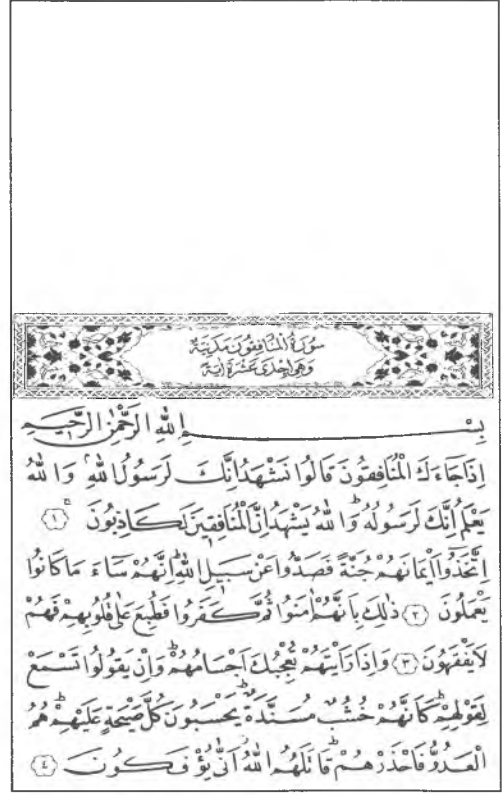 سُورَةُ الْمُنَافِقُونَ مَدَنِيَّةٌ
وَهِيَ اِحْدٰى عَشْرَةَ اٰيَةً
بِسْمِ اللّٰهِ الرَّحْمٰنِ الرَّحٖيمِ
اِذَا جَٓاءَكَ الْمُنَافِقُونَ قَالُوا نَشْهَدُ اِنَّكَ لَرَسُولُ اللّٰهِۢ وَاللّٰهُ
يَعْلَمُ اِنَّكَ لَرَسُولُهُۜ وَاللّٰهُ يَشْهَدُ اِنَّ الْمُنَافِقٖينَ لَكَاذِبُونَۚ ﴿١﴾
اِتَّخَذُٓوا اَيْمَانَهُمْ جُنَّةً فَصَدُّوا عَنْ سَبٖيلِ اللّٰهِۜ اِنَّهُمْ سَٓاءَ مَا كَانُوا
يَعْمَلُونَ ﴿٢﴾ ذٰلِكَ بِاَنَّهُمْ اٰمَنُوا ثُمَّ كَفَرُوا فَطُبِعَ عَلٰى قُلُوبِهِمْ فَهُمْ
لَا يَفْقَهُونَ ﴿٣﴾ وَاِذَا رَاَيْتَهُمْ تُعْجِبُكَ اَجْسَامُهُمْۜ وَاِنْ يَقُولُوا تَسْمَعْ
لِقَوْلِهِمْۜ كَاَنَّهُمْ خُشُبٌ مُسَنَّدَةٌۜ يَحْسَبُونَ كُلَّ صَيْحَةٍ عَلَيْهِمْۜ هُمُ
الْعَدُوُّ فَاحْذَرْهُمْۜ قَاتَلَهُمُ اللّٰهُۘ اَنّٰى يُؤْفَكُونَ ﴿٤﴾